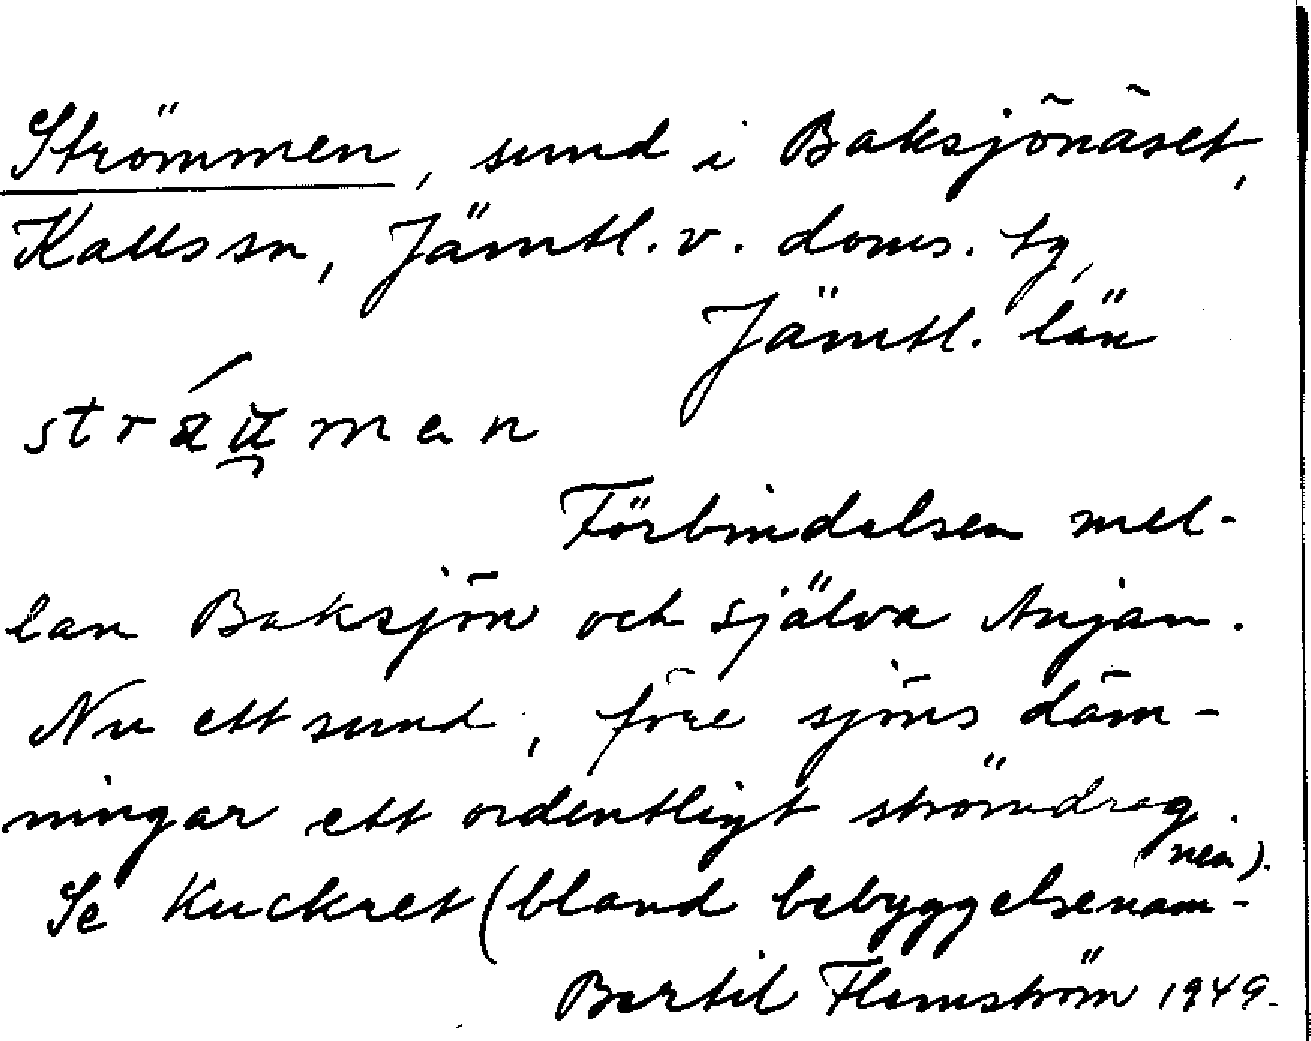 Strömmen, sund i Baksjönäset,
Kalls sn, Jämtl. v. doms. tg,
Jämtl. län
Förbindelsen mel-
lan Baksjön och själva Anjan.
Nu ett sund, före sjöns däm-
ningar ett ordentligt strömdrag.
Se Kuckret (bland bebyggelsenam-
nen).
Bertil Flemström 1949.